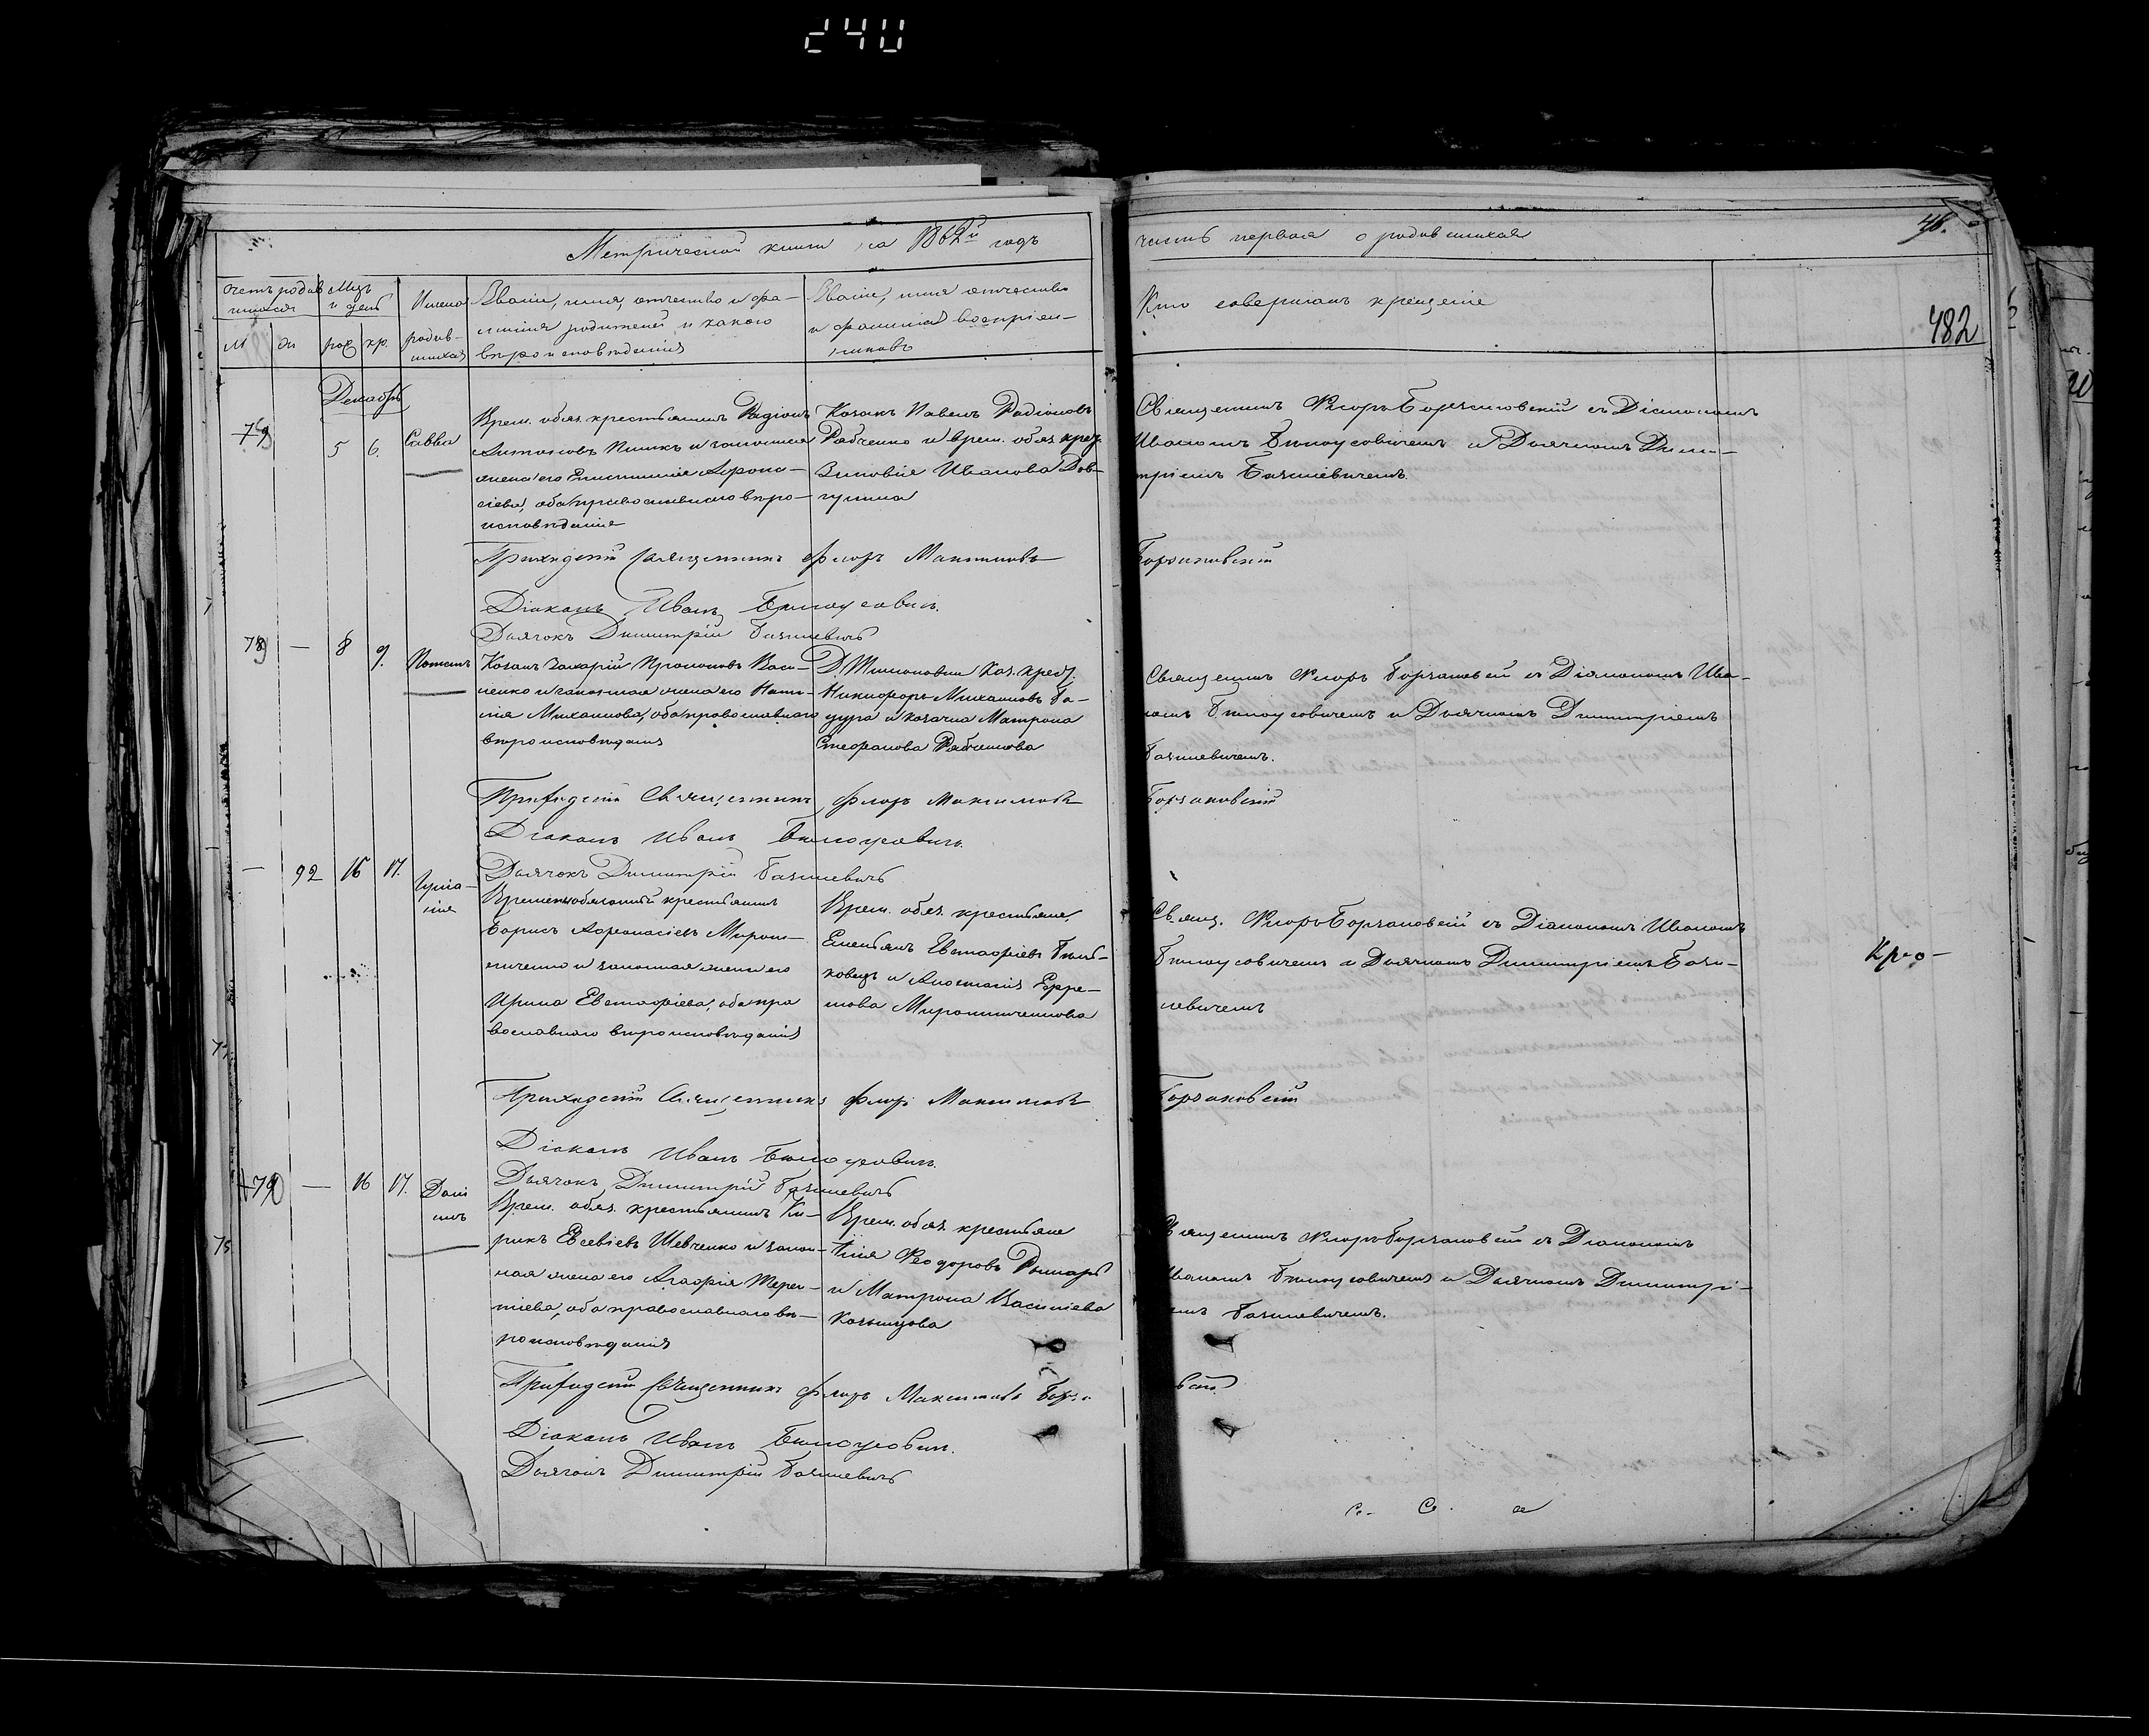 240
Метрической книги на 1862й годъ
часть первая о родившихся
46.
482
Счетъ родив
шихся
Мцъ
и день
Имена
родив-
шихся
М
ж
рож
кр.
Званіе, имя, отчество и фа-
милія родителей и какого
вѣроисповѣданія
Званіе, имя отчество
и фамилія воспріем-
никовъ
Кто совершалъ крещеніе
Декабрь
79
5
6.
Савва
Врем. обяз. крестьянинъ Радіонъ
Антоновъ и законная
жена его Аѳана-
сіева, оба православнаго вѣро-
исповѣданія
Козакъ Павелъ Радіоновъ
Рабченко и врем. обяз. крес.
Зиновія Иванова Дов-
Священникъ Флоръ Борзаковскій съ Діакономъ
Иваномъ Билоусовичемъ и Дьячкомъ Дими-
тріемъ Базилевичемъ.
Приходскій Священникъ Флоръ Максимовъ
Борзаковскій
Діаконъ Иванъ Билоусовичъ.
Дьячокъ Димитрій Базилевичъ
—
8
9.
Потапъ
Козакъ Захарій Васи-
ленко и законная жена его Ната-
лія Михайлова, оба православнаго
вѣроисповѣданія
Никифоръ Михайловъ Ба-
дура и козачка Матрона
Стефанова Рабченкова
Священникъ Флоръ Борзаковскій съ Діакономъ Ива-
номъ Билоусовичемъ и Дьячкомъ Димитріемъ
Базилевичемъ.
Приходскій Священникъ Флоръ Максимовъ
Борзаковскій
Діаконъ Иванъ Билоусовичъ.
Дьячокъ Димитрій Базилевичъ
—
92
16
17.
Іуліа-
нія
Временнообязанный крестьянинъ
Борисъ Аѳанасіевъ Мирош-
ниченко и законная жена его
Ирина Евстафіева, оба пра
вославнаго вѣроисповѣданія
Врем. обяз. крестьяне
Емельянъ Евстафіевъ
и Анастасія Ефре-
мова Мирошниченкова
Свящ. Флоръ Борзаковскій съ Діакономъ Иваномъ
Билоусовичемъ и Дьячкомъ Димитріемъ Бази-
левичемъ
Кр-о-
Приходскій Священникъ Флоръ Максимовъ
Борзаковскій
Діаконъ Иванъ Билоусовичъ.
Дьячокъ Димитрій Базилевичъ
—
16
17.
Дані
илъ
Врем. обяз. крестьянинъ Ки-
рикъ Евсевіевъ Шевченко и закон-
ная жена его Агафія Терен-
тіева, оба православнаго вѣ-
роисповѣданія
Врем. обяз. крестьяне
Илія Ѳеодоровъ
и Матрона Василіева
Священникъ Флоръ Борзаковскій съ Діакономъ
Иваномъ Билоусовичемъ и Дьячкомъ Димитрі-
емъ Базилевичемъ.
Приходскій Священникъ Флоръ Максимовъ
Діаконъ Иванъ Билоусовичъ.
Дьячокъ Димитрій Базилевичъ